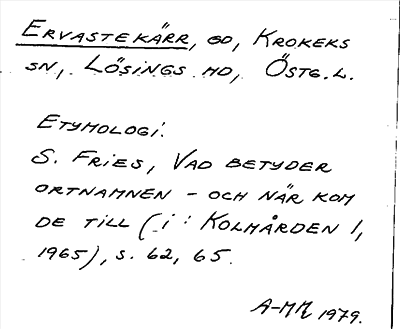 ERVASTEKÄRR, GD, KROKEKS
SN, LÖSINGS HD, ÖSTG.L.
ETYMOLOGI:
S. FRIES, VAD BETYDER
ORTNAMNEN - OCH NÄR KOM
DE TILL (i: KOLMÅRDEN 1,
1965), S. 62, 65.
A-MM 1979.